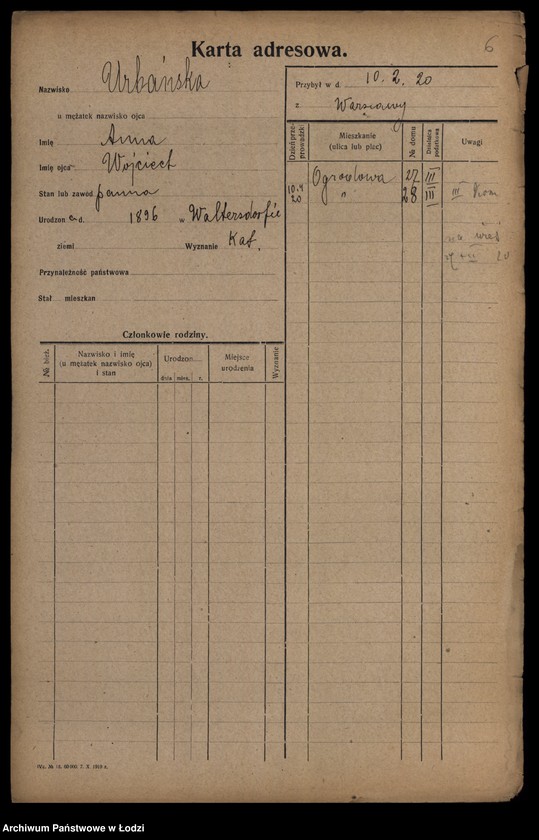 6
Karta adresowa.
Nazwisko Urbańska
u mężatek nazwisko ojca
Imię Anna
Imię ojca Wojciech
Stan lub zawód panna
Urodzon a d. 1896 w Waltersdorfie
ziemi Wyznanie Kat.
Przynależność państwowa
Stał mieszkan
Przybył w d. 10.2.20
z Warszawy
Dzień przeprowadzki
Mieszkanie (ulica lub plac)
№ domu
Dzielnica podatkowa
Uwagi
Ogrodowa 22 III
10.4 20 " 28 III III Kom
20
Członkowie rodziny.
№ bież.
Nazwisko i imię
(u mężatek nazwisko ojca)
i stan
Urodzon
dnia mies. r.
Miejsce
urodzenia
Wyznanie
7. X. 1919 r.
Archiwum Państwowe w Łodzi